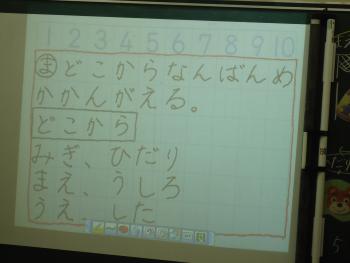 1 2 3 4 5 6 7 8 9 10
まどこからなんばんめ
かかんがえる。
どこから
みぎ、ひだり
まえ、うしろ
うえ、した
5